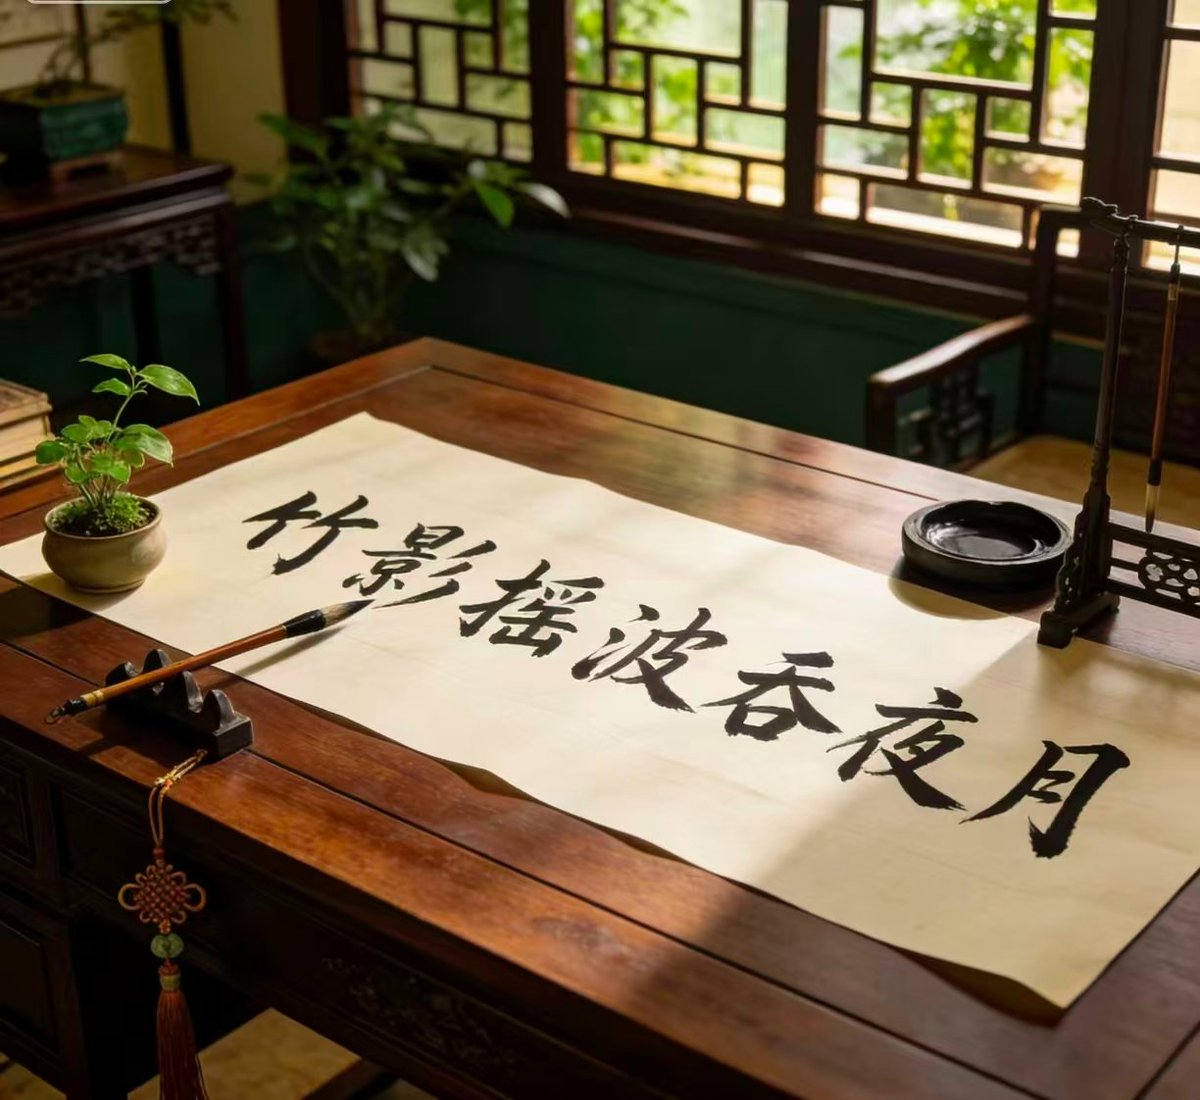 竹影摇波吞夜月